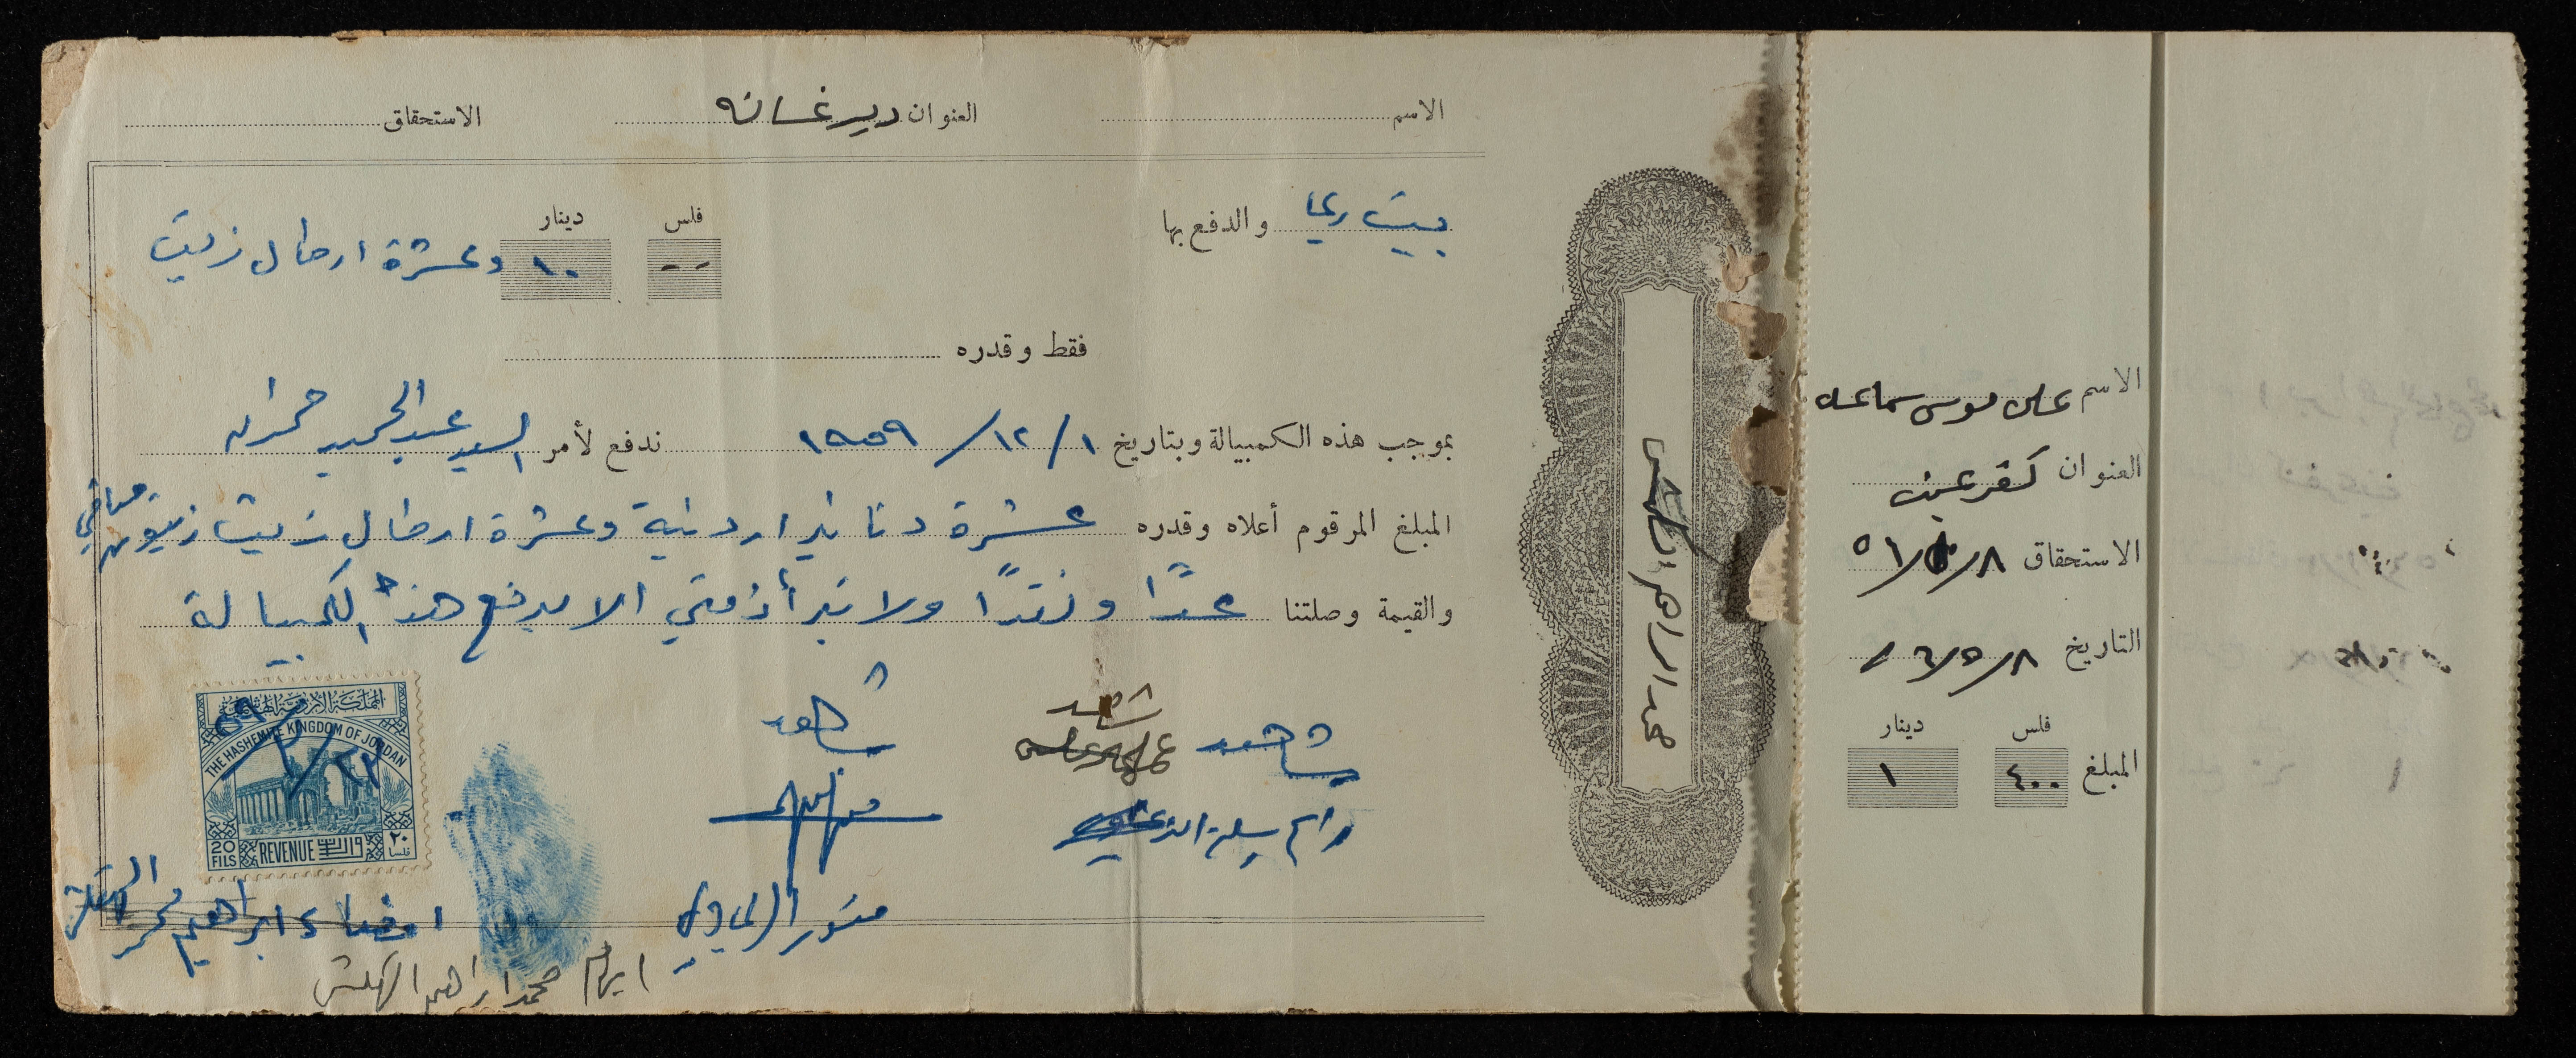 الاسم العنوان دير غسانه الاستحقاق
بيت ريما والدفع بها
فلس دينار
-- ١٠ وعشرة ارطال زيت
فقط وقدره
بموجب هذه الكمبيالة وبتاريخ ١/١٢/١٩٥٩ ندفع لأمر السيد عبد الحميد حمدان
المبلغ المرقوم أعلاه وقدره عشرة دنانير اردنية وعشرة ارطال زيت زيتون صافي
والقيمة وصلتنا عدًا ونقدًا ولا تبرأ ذمتي الا بدفع هذه الكمبيالة
شاهد شاهد شاهد
منور الريماوي
امضاء ابراهيم
ابراهيم محمد ابراهيم
المملكة الأردنية الهاشمية
THE HASHEMITE KINGDOM OF JORDAN
٢٢/٢/٥٩
20 FILS REVENUE واردات ٢٠ فلسا
محمد ابراهيم
الاسم علي موسى سماعنه
العنوان كفر عين
الاستحقاق
التاريخ
فلس دينار
المبلغ ٤٠٠ ١